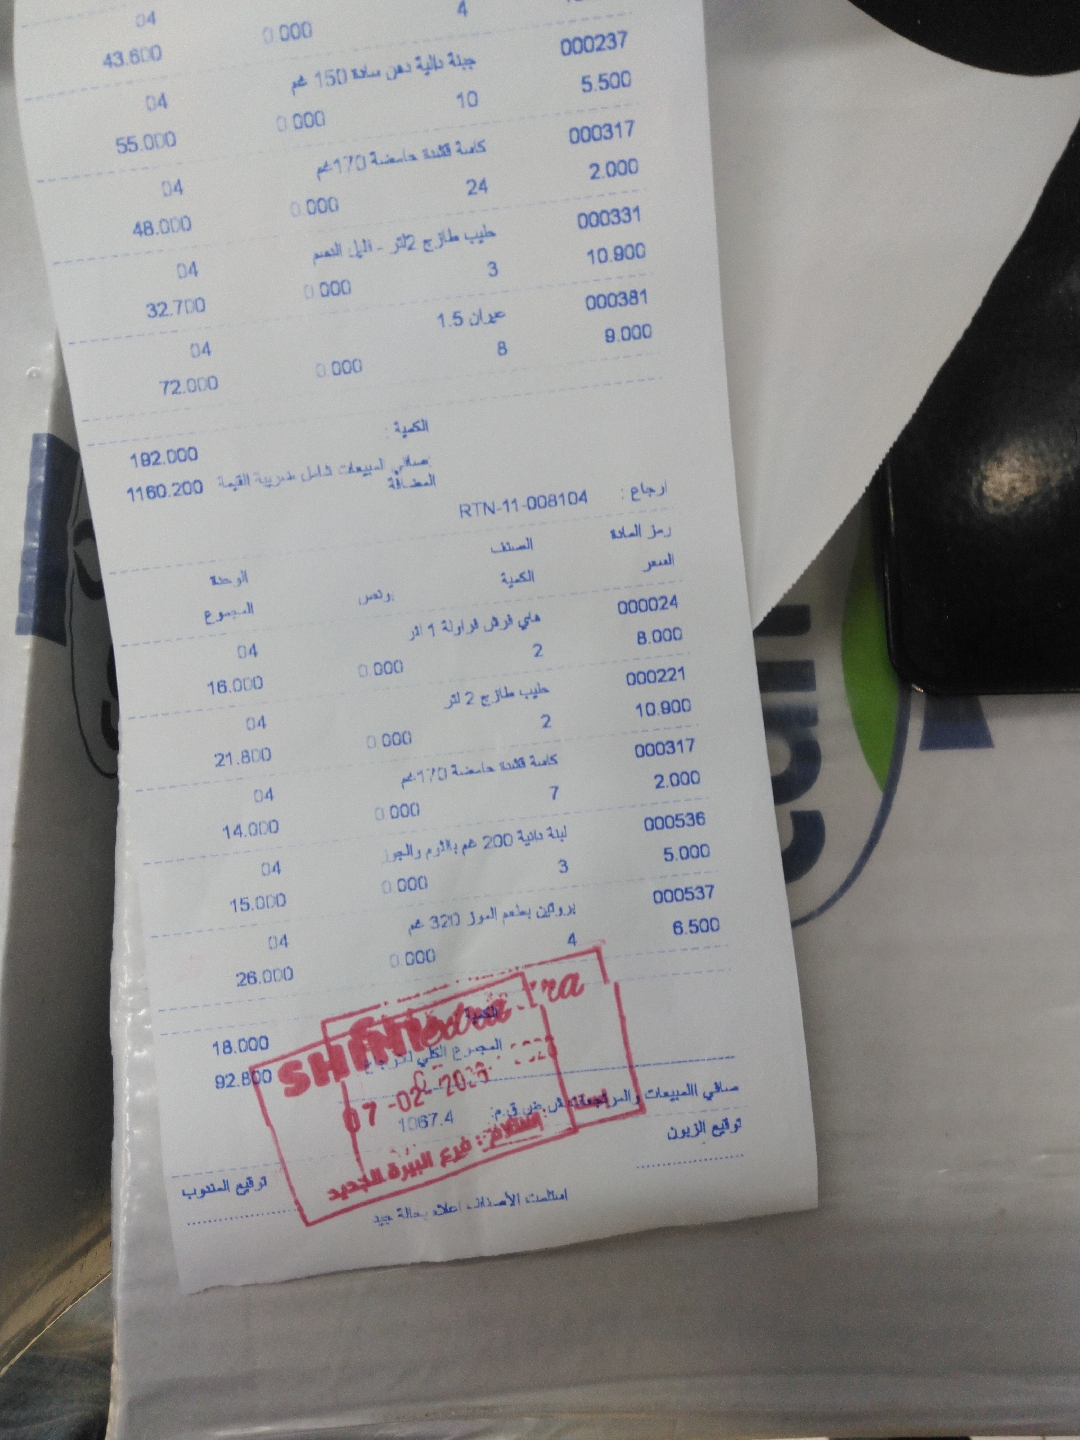 4
04
0.000
43.600
000237
جبنة دانية دهن سادة 150 غم
04
5.500
10
0.000
55.000
000317
كاسة قشدة حامضة 170غم
04
2.000
24
0.000
48.000
000331
حليب طازج 2لتر -
04
10.900
3
0.000
32.700
000381
عيران 1.5
04
9.000
8
0.000
72.000
الكمية :
192.000
صافي المبيعات شامل ضريبية القيمة المضافة
1160.200
ارجاع : RTN-11-008104
رمز المادة الصنف الوحدة
السعر الكمية بونص المجموع
000024
هاي فرش فراولة 1 لتر
04
8.000
2
0.000
16.000
000221
حليب طازج 2 لتر
04
10.900
2
0.000
21.800
000317
كاسة قشدة حامضة 170غم
04
2.000
7
0.000
14.000
000536
لبنة دانية 200 غم بالثوم والجوز
04
5.000
3
0.000
15.000
000537
بروتين بطعم الموز 320 غم
04
6.500
4
0.000
26.000
الكمية
18.000
المجموع الكلي للارجاع
92.800
صافي المبيعات والمرتجعات ش.ض.ق.م:
1067.4
توقيع الزبون
توقيع المندوب
استلمت الأصناف اعلاه بحالة جيد
SHINI
07-02-2026
استلام : فرع البيرة الجديد